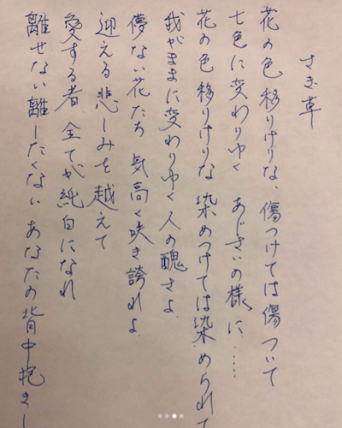 さき草
花の色移りけりな、傷つけては傷ついて
七色に変わりゆく あじさいの様に……
花の色移りけりな 染めつけては染められて
我がままに変わりゆく人の醜さよ
儚ない花たち 気高く咲き誇れよ
迎える悲しみを越えて
愛する者、全てが純白になれ
離せない離したくない あなたの背中抱きし